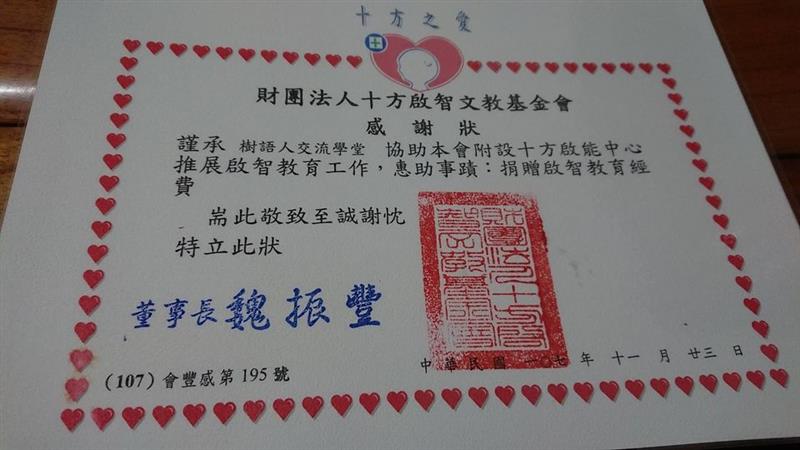 十方之愛
財團法人十方啟智文教基金會
感謝狀
謹承 樹語人交流學堂 協助本會附設十方啟能中心
推展啟智教育工作，惠助事蹟：捐贈啟智教育經
費
耑此敬致至誠謝忱
特立此狀
董事長 魏振豐
中華民國 一〇七年 十一月 廿三日
(107) 會豐感第195號